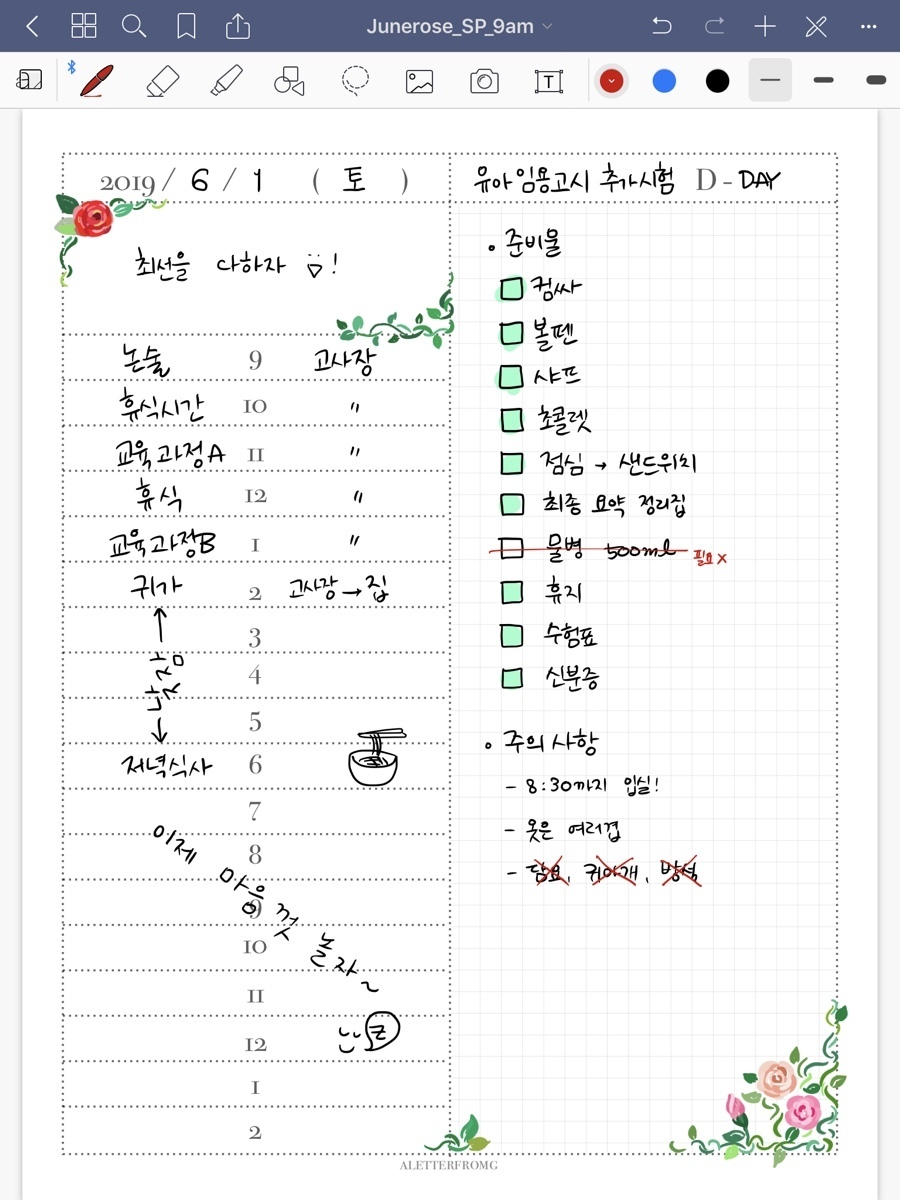 Junerose_SP_9am
2019 / 6 / 1 ( 토 )
유아임용고시 추가시험 D - DAY
최선을 다하자 !
논술 9 고사장
휴식시간 10 〃
교육과정A 11 〃
휴식 12 〃
교육과정B 1 〃
귀가 2 고사장 → 집
3
낮잠 4
5
저녁식사 6
7
8
9
10
11
12
1
2
이제 마음껏 놀자~
• 준비물
컴싸
볼펜
샤프
초콜렛
점심 → 샌드위치
최종 요약 정리집
물병 500ml 필요 X
휴지
수험표
신분증
• 주의 사항
- 8:30까지 입실!
- 옷은 여러겹
- 담요, 귀마개, 방석
ALETTERFROMG